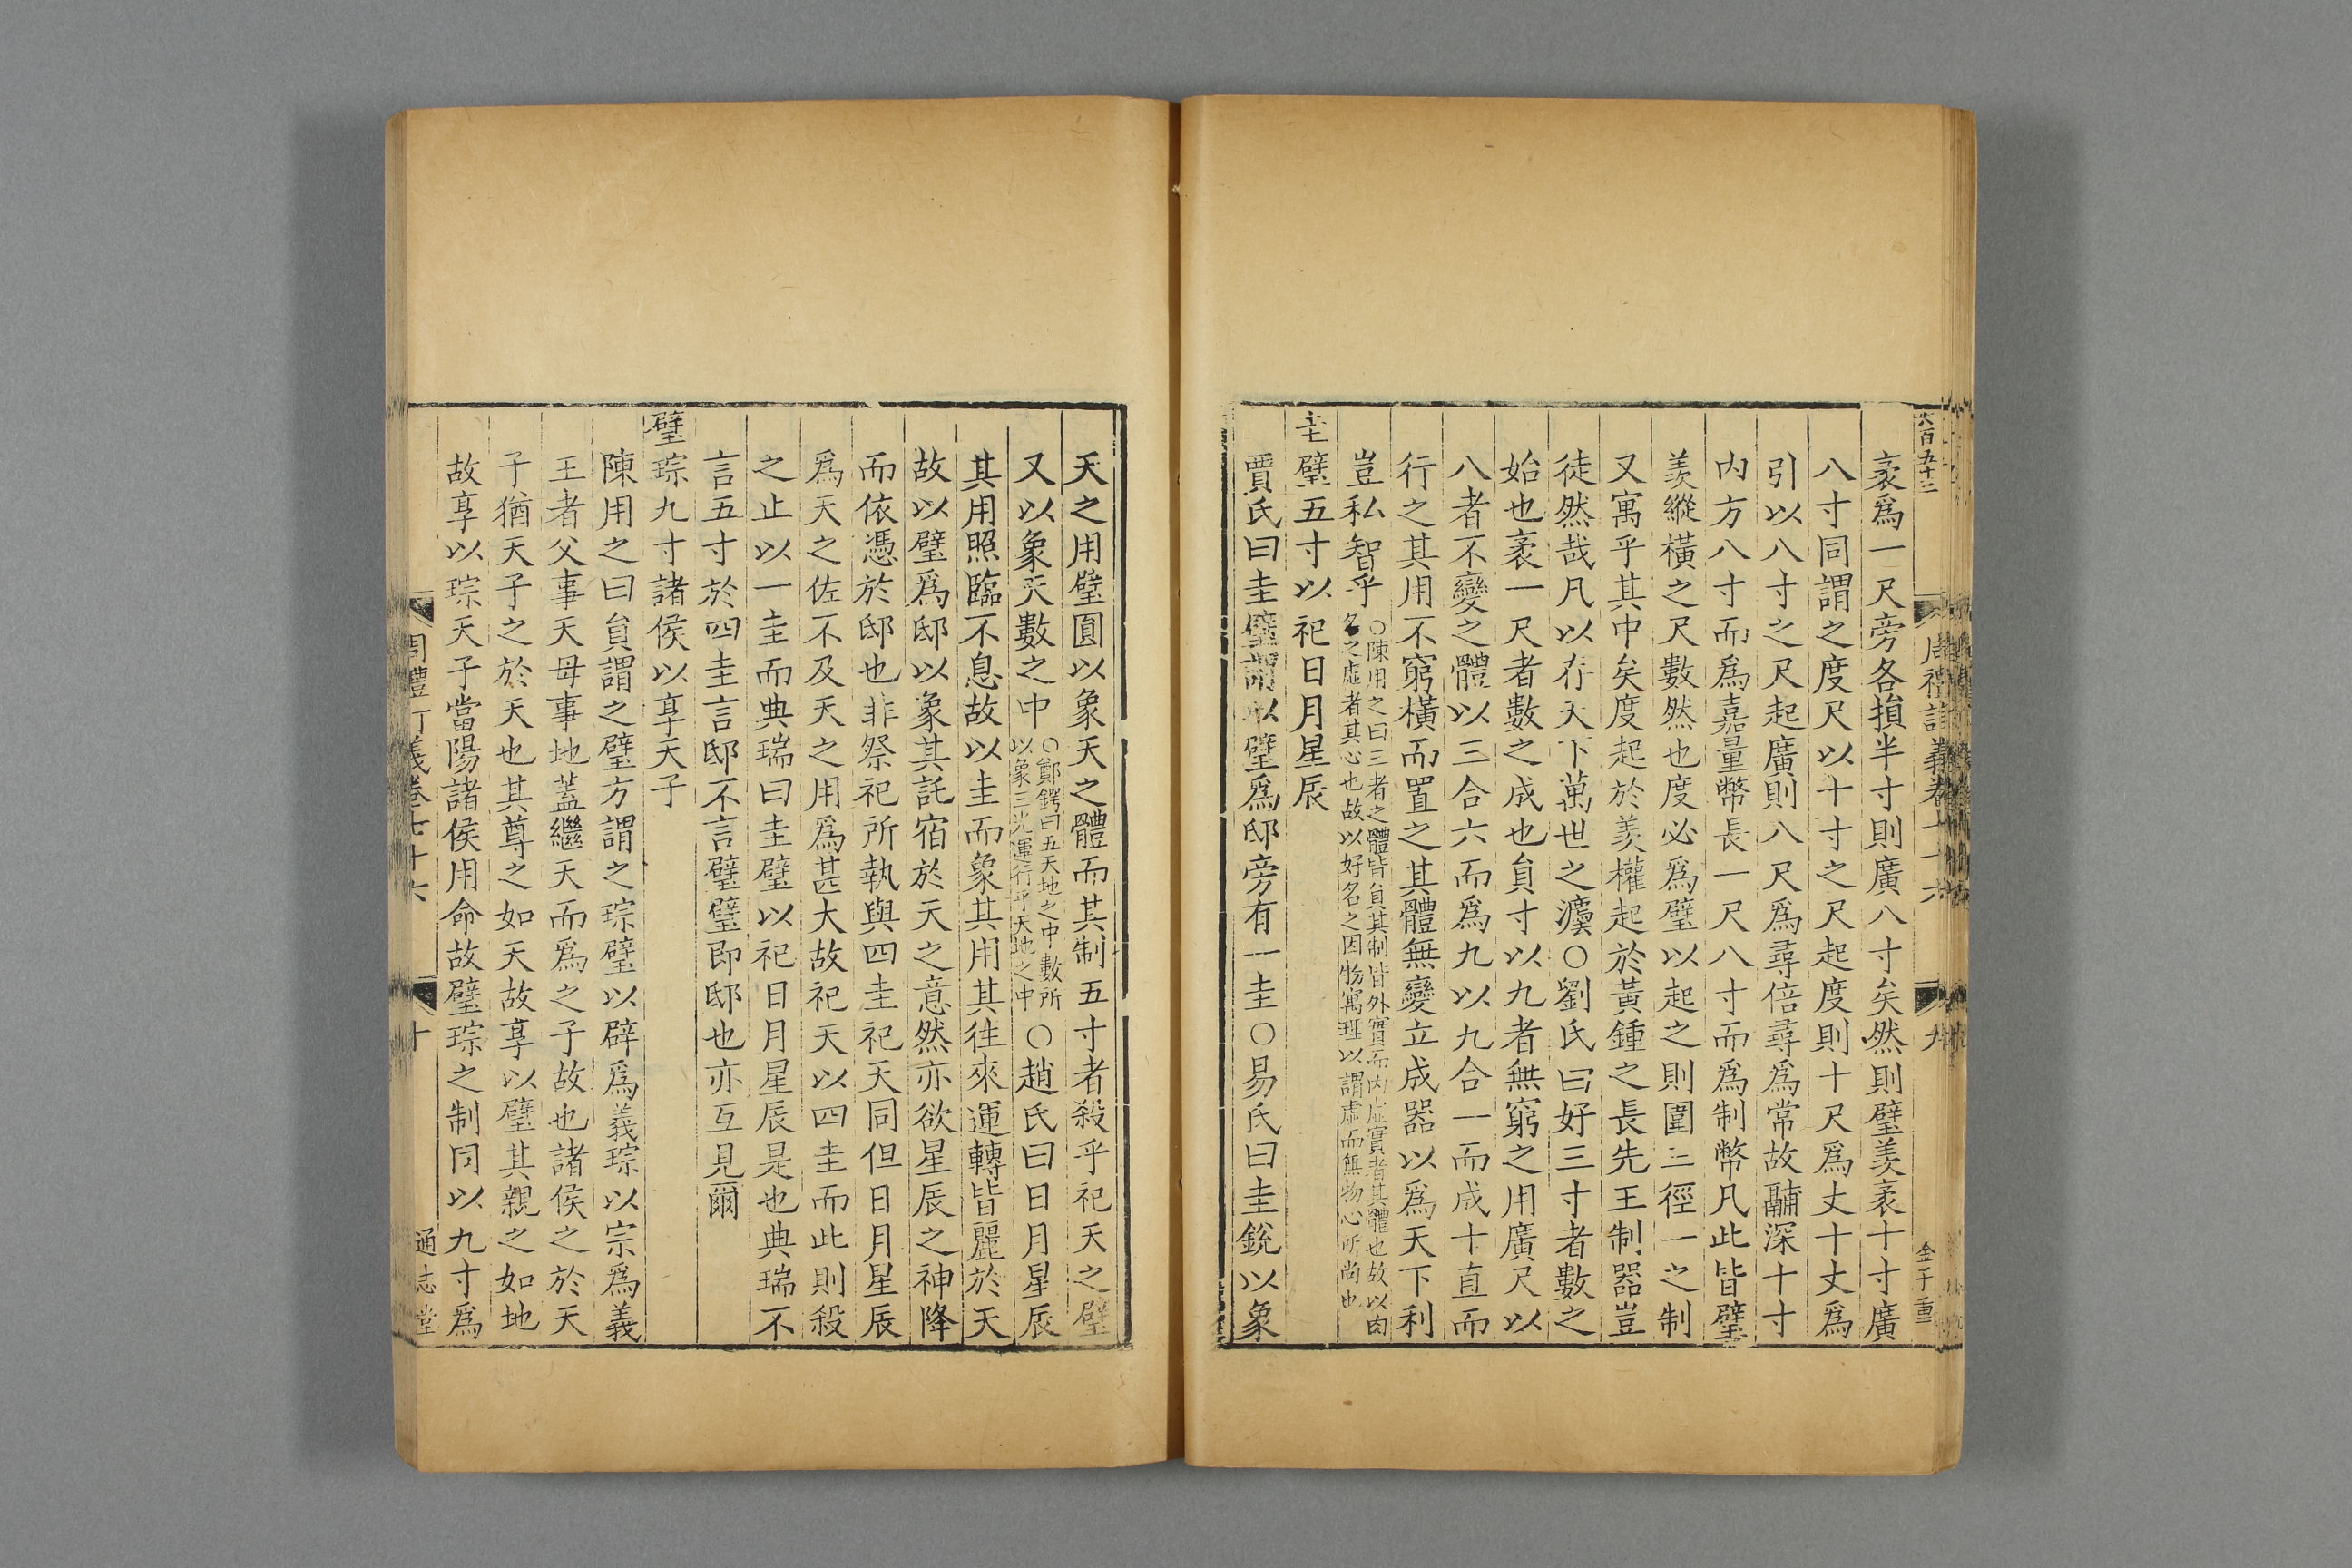 六百五十二
周禮訂義卷七十六
九
金子重
袤爲一尺旁各損半寸則廣八寸矣然則璧羨袤十寸廣
八寸同謂之度尺以十寸之尺起度則十尺爲丈十丈爲
引以八寸之尺起廣則八尺爲尋倍尋爲常故鬴深十寸
内方八寸而爲嘉量幣長一尺八寸而爲制幣凡此皆璧
羨縱橫之尺數然也度必爲璧以起之則圍三徑一之制
又寓乎其中矣度起於羨權起於黃鍾之長先王制器豈
徒然哉凡以存天下萬世之灋○劉氏曰好三寸者數之
始也袤一尺者數之成也負寸以九者無窮之用廣尺以
八者不變之體以三合六而爲九以九合一而成十直而
行之其用不窮橫而置之其體無變立成器以爲天下利
豈私智乎
○陳用之曰三者之體皆負其制皆外實而内虛實者其體也故以肉
名之虛者其心也故以好名之因物寓理以謂虛而無物心所尚也
圭璧五寸以祀日月星辰
賈氏曰圭璧謂以璧爲邸旁有一圭○易氏曰圭銳以象
天之用璧圓以象天之體而其制五寸者殺乎祀天之璧
又以象天數之中
○鄭鍔曰五天地之中數所
以象三光運行乎天地之中
○趙氏曰日月星辰
其用照臨不息故以圭而象其用其往來運轉皆麗於天
故以璧爲邸以象其託宿於天之意然亦欲星辰之神降
而依憑於邸也非祭祀所執與四圭祀天同但日月星辰
爲天之佐不及天之用爲甚大故祀天以四圭而此則殺
之止以一圭而典瑞曰圭璧以祀日月星辰是也典瑞不
言五寸於四圭言邸不言璧璧即邸也亦互見爾
璧琮九寸諸侯以享天子
陳用之曰負謂之璧方謂之琮璧以辟爲義琮以宗爲義
王者父事天母事地蓋繼天而爲之子故也諸侯之於天
子猶天子之於天也其尊之如天故享以璧其親之如地
故享以琮天子當陽諸侯用命故璧琮之制同以九寸爲
周禮訂義卷七十六
十
通志堂